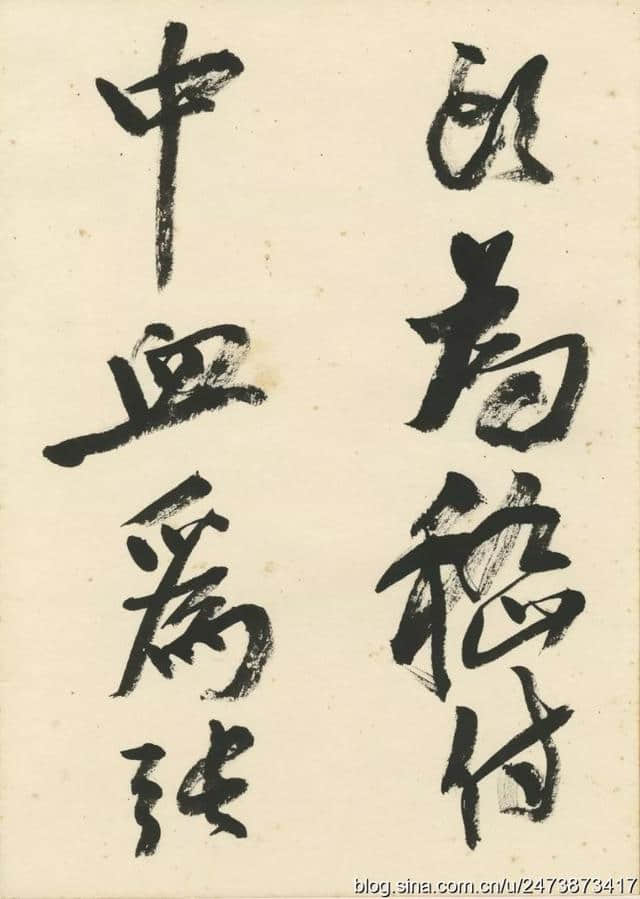 頭為嵇侍
中血爲張
blog.sina.com.cn/u/2473873417